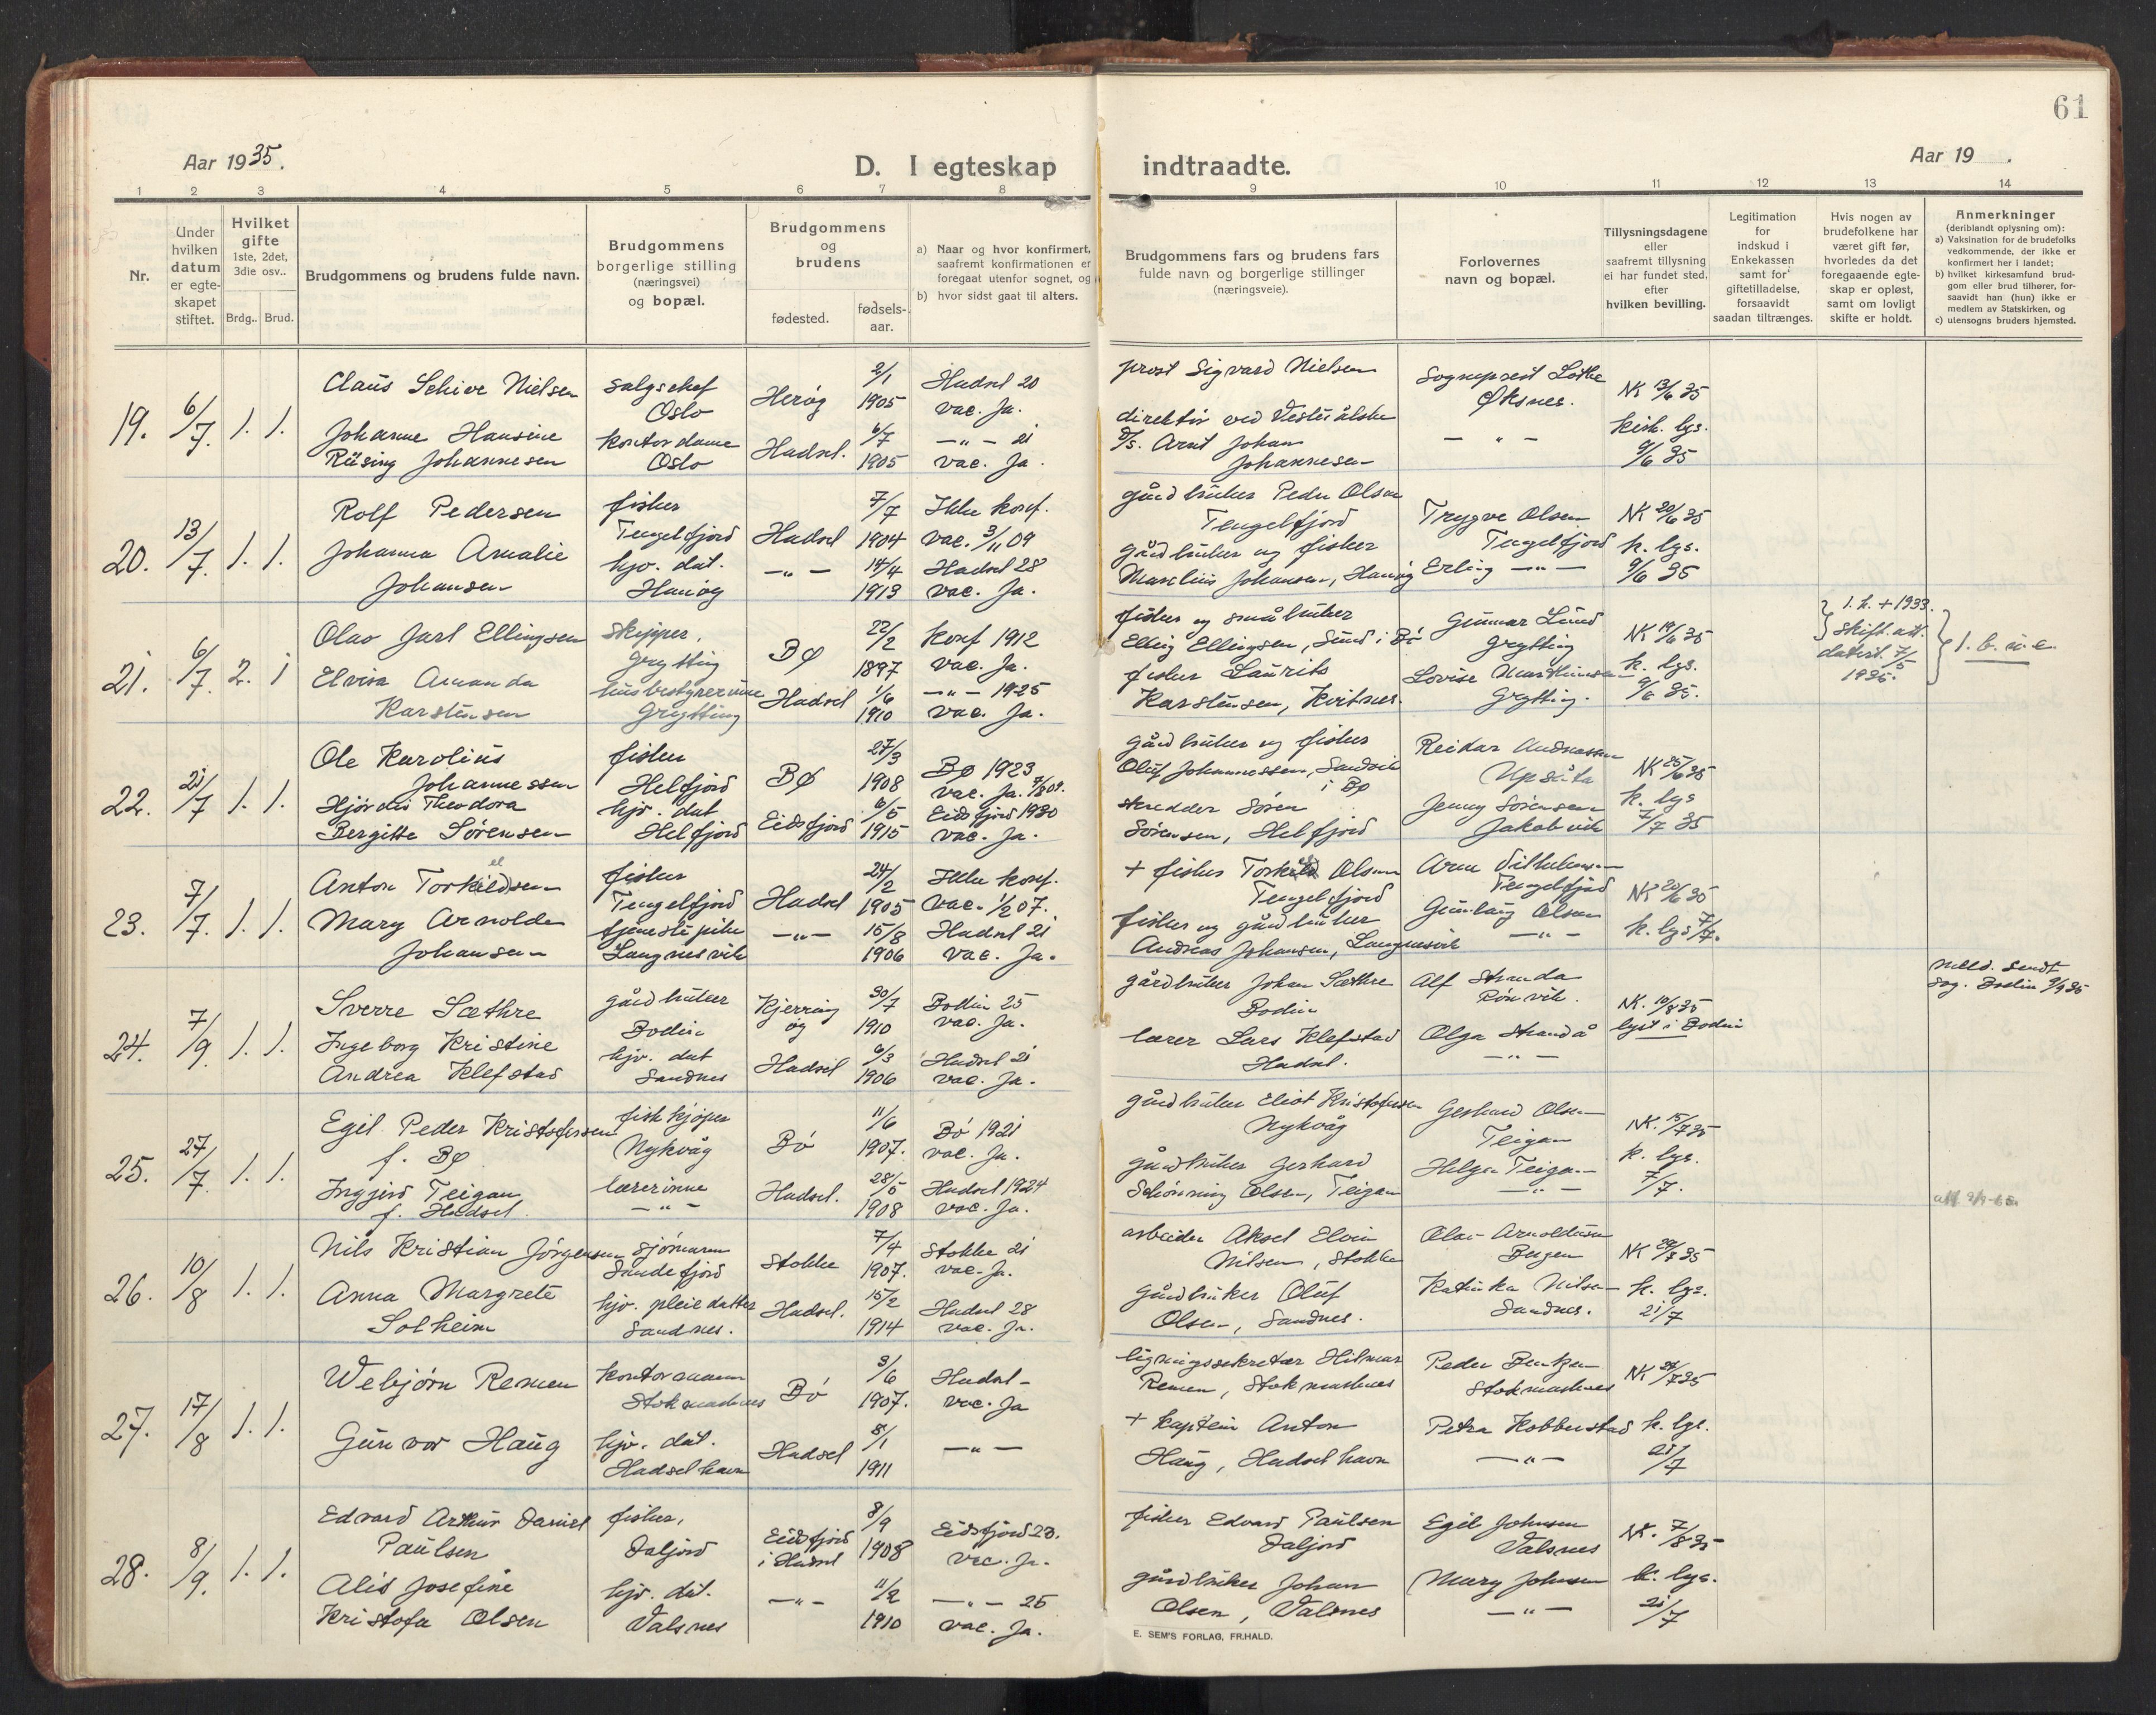 61
Aar 1935.
D. I egteskap indtraadte.
Aar 19 .
1 2 3 4 5 6 7 8 9 10 11 12 13 14
Nr.
Under hvilken datum er egteskapet stiftet.
Hvilket gifte
1ste, 2det, 3die osv..
Brdg.. Brud.
Brudgommens og brudens fulde navn.
Brudgommens borgerlige stilling (næringsvei) og bopæl.
Brudgommens og brudens
fødested.
fødsels-aar.
a) Naar og hvor konfirmert, saafremt konfirmationen er foregaat utenfor sognet, og
b) hvor sidst gaat til alters.
Brudgommens fars og brudens fars fulde navn og borgerlige stillinger (næringsveie).
Forlovernes navn og bopæl.
Tillysningsdagene eller saafremt tillysning ei har fundet sted, efter hvilken bevilling.
Legitimation for indskud i Enkekassen samt for giftetilladelse, forsaavidt saadan tiltrænges.
Hvis nogen av brudefolkene har været gift før, hvorledes da det foregaaende egteskap er opløst, samt om lovligt skifte er holdt.
Anmerkninger
(deriblandt oplysning om):
a) Vaksination for de brudefolks vedkommende, der ikke er konfirmert her i landet;
b) hvilket kirkesamfund brudgom eller brud tilhører, forsaavidt han (hun) ikke er medlem av Statskirken, og
c) utensogns bruders hjemsted.
19. 6/7. 1. 1.
Claus Schive Nielsen salgschef Oslo Herøy 2/1 1905 Hadsel 20 vac. Ja.
prost Sigvard Nielsen Sogneprest Løthe Øksnes. NK 13/6 35
Johanne Hansine Rüsing Johannesen kontordame Oslo Hadsel. 6/7 1905 —"— 21 vac. Ja.
direktør ved Vesteraalske D/S. Arnt Johan Johannesen — " — kirk. lys. 9/6 35
20. 13/7. 1. 1.
Rolf Pedersen fisker Tengelfjord Hadsel 7/7 1904 Ikke konf. vac. 3/11 09
gårdbruker Peder Olsen Tengelfjord Trygve Olsen Tengelfjord NK 20/6 35
Johanna Amalie Johansen hjv. dat. Hanøy —"— 14/4 1913 Hadsel 28 vac. Ja.
gårdbruker og fisker Marelius Johansen, Hanøy Erling —"— k. lys. 9/6 35
21. 6/7. 2. 1
Olav Jarl Ellingsen skipper, Grytting BØ 22/2 1897 konf 1912 vac. Ja.
fisker og småbruker Elling Ellingsen, Sund i Bø Gunnar Lund Grytting NK 19/6 35
1. h. + 1933. skift. att. datert 7/5 1935.
1. b. u. e.
Elvira Amanda Karstensen husbestyrerinne Grytting Hadsel 1/6 1910 —"— 1925 vac. Ja.
fisker Laurits Karstensen, Kvitnes. Lovise Grytting. k. lys. 9/6 35.
22. 21/7 1. 1.
Ole Karolius Johannessen fisker Helfjord BØ 27/3 1908 Bø 1923 vac. Ja.
gårdbruker og fisker Oluf Johannessen, Sandvik i Bø Reidar Andreassen Upsåta NK 25/6 35
Hjørdis Theodora Bergitte Sørensen hjv. dat Helfjord Eidsfjord 6/5 1915 Eidsfjord 1930 vac. Ja.
skredder Søren Sørensen, Helfjord Jenny Sørensen Jakobvik k. lys 7/7 35
23. 7/7. 1. 1.
Anton Torkildsen fisker Tengelfjord Hadsel 24/2 1905 Ikke konf. vac. 1/2 07.
+ fisker Torkild Olsen Tengelfjord Arne Vilhelmsen Tengelfjord NK 20/6 35
Mary Arnolde Johansen tjenestepike Langnesvik —"— 15/8 1906 Hadsel 21 vac. Ja.
fisker og gårdbruker Andreas Johansen, Langnesvik Gunlaug Olsen —"— k. lys 7/7.
24. 7/9. 1. 1.
Sverre Sæthre gårdbruker Bodin Kjerringøy 30/7 1910 Bodin 25 vac. Ja.
gårdbruker Johan Sæthre Bodin Alf Stranda Rønvik. NK. 10/8 35 lyst i Bodin
meld. sendt sog. Bodin 9/9 35
Ingeborg Kristine Andrea Klefstad hjv. dat Sandnes Hadsel 6/3 1906 Hadsel 21 vac. Ja.
lærer Lars Klefstad Hadsel. Olga Strandå —"—
25. 27/7 1. 1.
Egil Peder Kristoffersen f. Bø fiskekjøper Nykvåg Bø 11/6 1907. Bø 1921 vac. Ja.
gårdbruker Eliot Kristoffersen Nykvåg Gerhard Olsen Teigan NK. 15/7 35
Ingjerd Teigan f. Hadsel. lærerinne —"— Hadsel. 28/5 1908 Hadsel 1924 vac. Ja.
gårdbruker Gerhard Schønning Olsen, Teigan Helga Teigan —"— k. lys. 7/7.
26. 10/8 1. 1.
Nils Kristian Jörgensen sjømann Sandefjord Stokke 7/4 1907. Stokke 21 vac. Ja.
arbeider Aksel Elvin Nilsen, Stokke Olav Arnoldusen Bergen NK 29/7 35
Anna Margrete Solheim hjv. pleiedatter Sandnes. Hadsel. 15/2 1914 Hadsel 28 vac. Ja.
gårdbruker Oluf Olsen, Sandnes. Katinka Nilsen Sandnes. k. lys. 21/7
27. 17/8 1. 1.
Webjørn Remen kontormann Stokmarknes Bø 3/6 1907. Hadsel- vac. Ja
ligningssekretær Hilmar Remen, Stokmarknes Peder Bentzen Stokmarknes NK 24/7 35
Gunvor Haug hjv. dat. Hadselhavn Hadsel 8/1 1911 —"—
+ kaptein Anton Haug, Hadselhavn Petra Kobberstad —"— k. lys. 21/7
28. 8/9. 1. 1.
Edvard Arthur Daniel Paulsen fisker, Daljord Eidsfjord i Hadsel 8/9 1908 Eidsfjord 23. vac. Ja.
fisker Edvard Paulsen Daljord Egil Johnsen Valsnes NK. 7/8 35
Alis Josefine Kristofa Olsen hjv. dat. Valsnes —"— 11/2 1910 —"— 25 vac. Ja.
gårdbruker Johan Olsen, Valsnes Mary Johnsen —"— k. lys. 21/7
E. SEM'S FORLAG, FR.HALD.